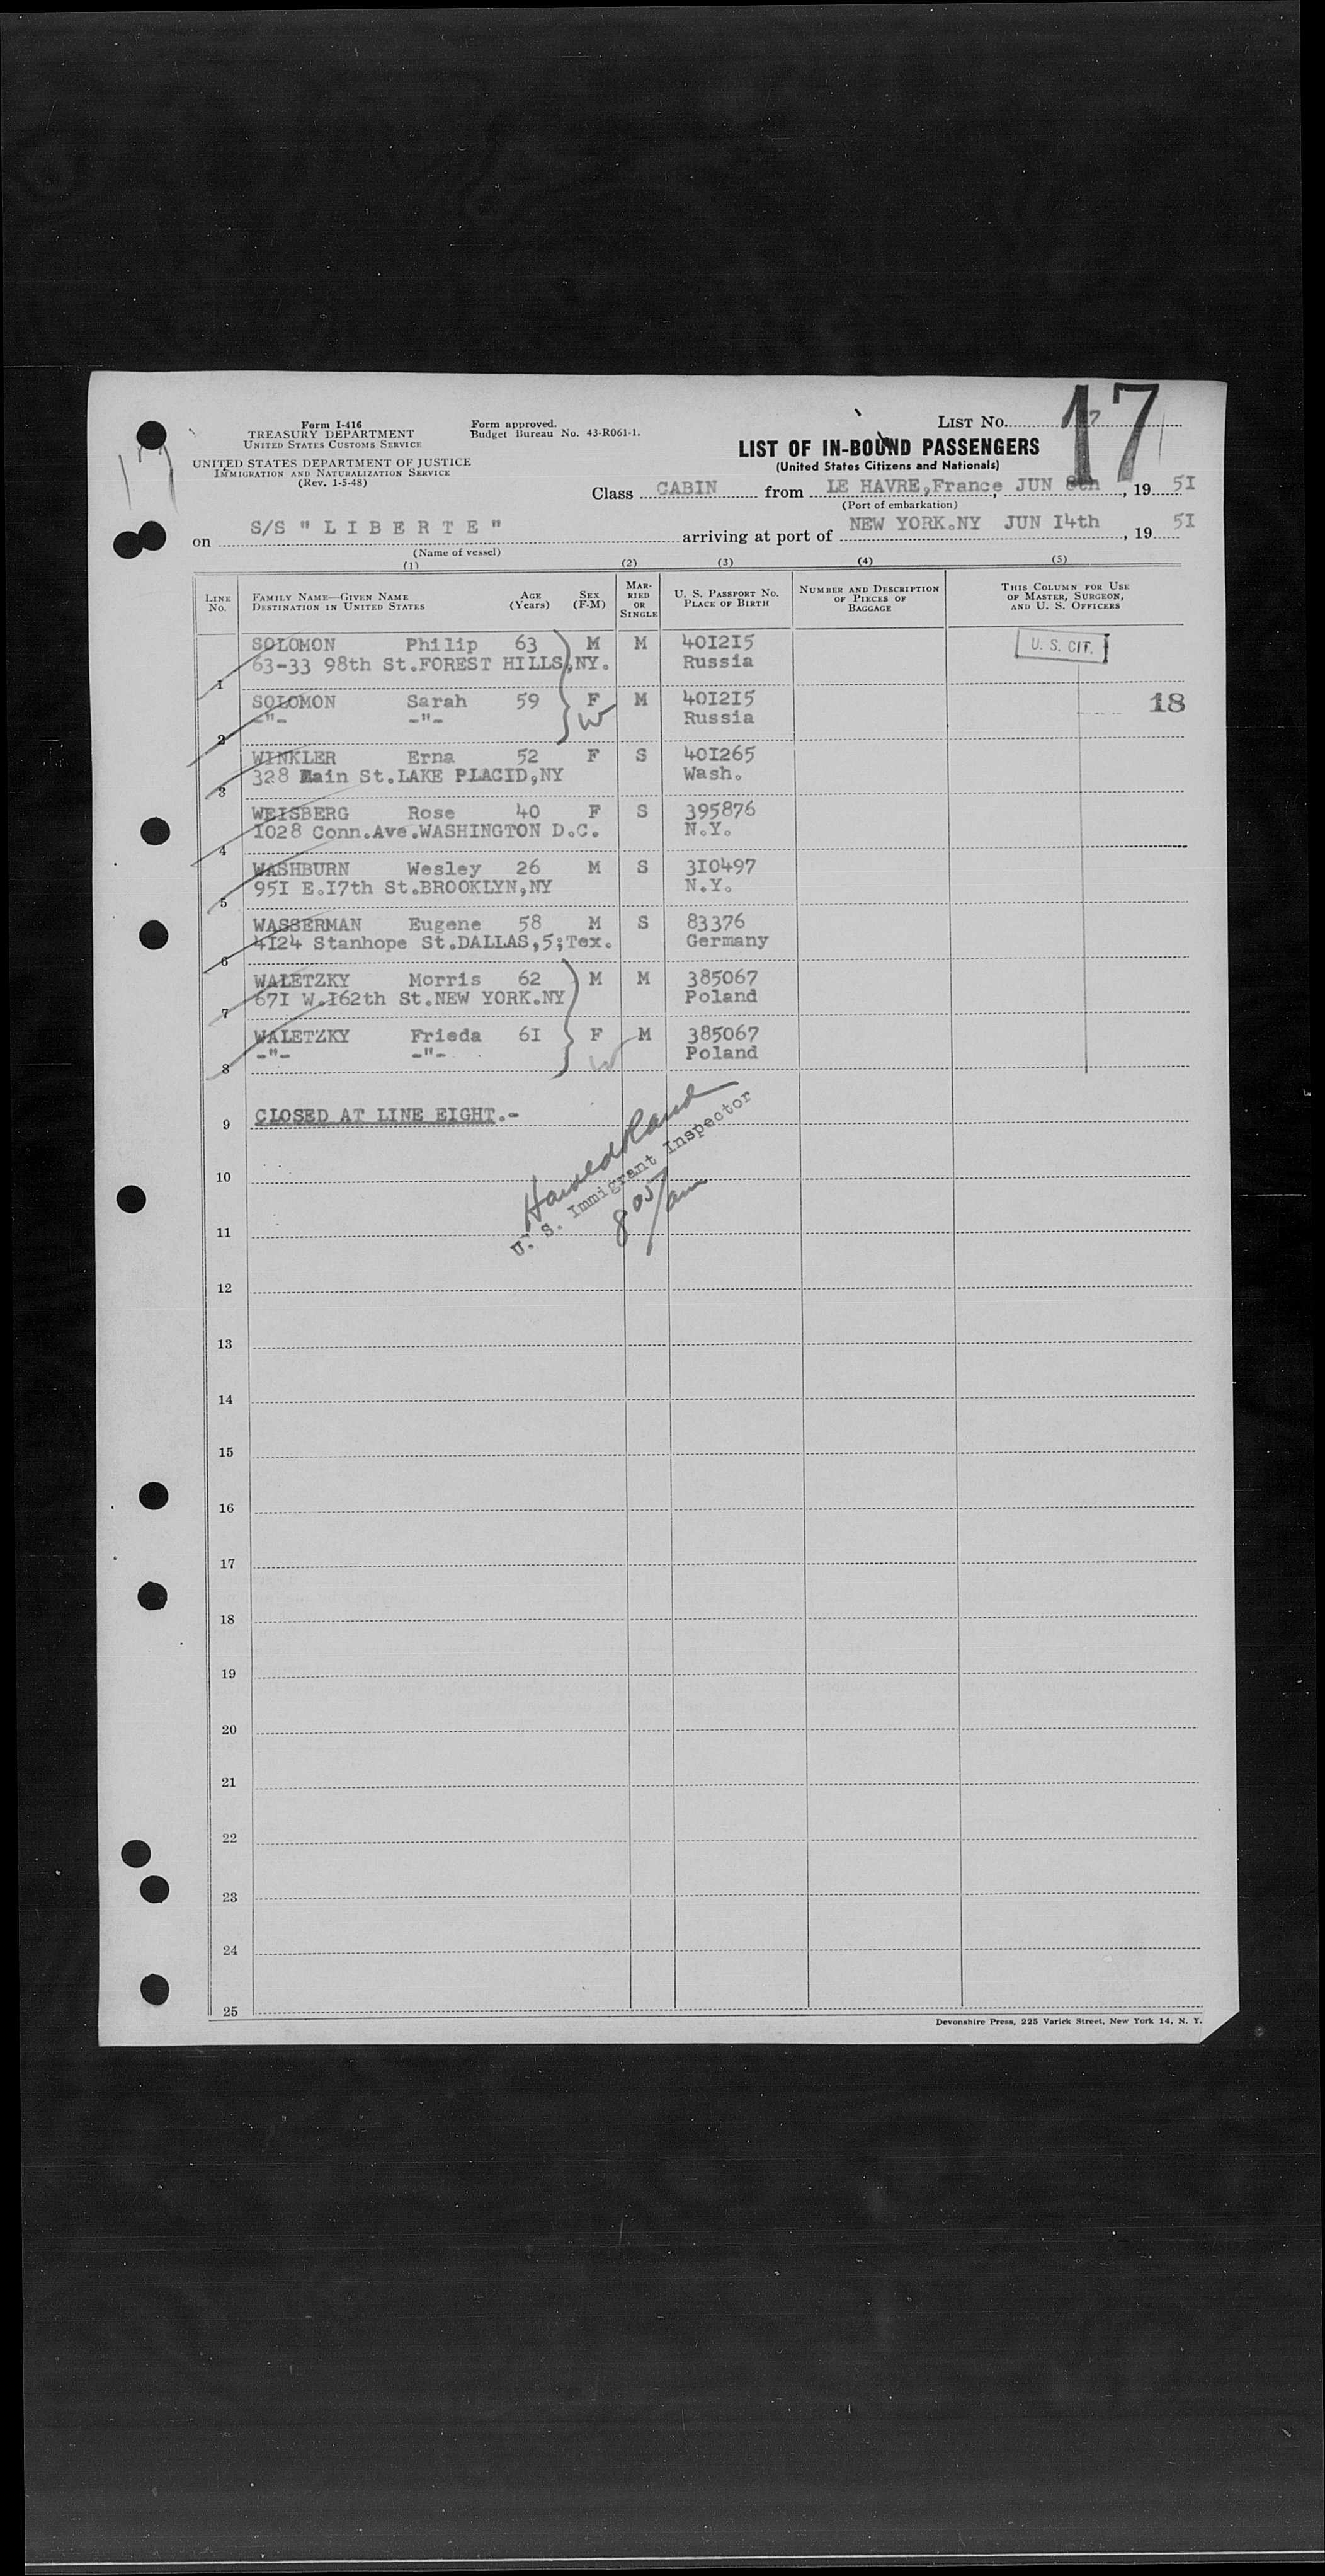 Form I-416
TREASURY DEPARTMENT
UNITED STATES CUSTOMS SERVICE
UNITED STATES DEPARTMENT OF JUSTICE
IMMIGRATION AND NATURALIZATION SERVICE
(Rev. 1-5-48)
Form approved.
Budget Bureau No. 43-R061-1.
LIST NO. 17
17
LIST OF IN-BOUND PASSENGERS
(United States Citizens and Nationals)
Class CABIN from LE HAVRE,France, JUN 8th, 19 5I
(Port of embarkation)
on S/S " L I B E R T E " arriving at port of NEW YORK.NY JUN I4th, 19 5I
(Name of vessel)
(1) (2) (3) (4) (5)
LINE NO. FAMILY NAME—GIVEN NAME DESTINATION IN UNITED STATES AGE (Years) SEX (F-M) MARRIED OR SINGLE U. S. PASSPORT NO. PLACE OF BIRTH NUMBER AND DESCRIPTION OF PIECES OF BAGGAGE THIS COLUMN FOR USE OF MASTER, SURGEON, AND U. S. OFFICERS
SOLOMON Philip 63 M M 40I2I5 U. S. CIT.
63-33 98th St.FOREST HILLS,NY. Russia
1
SOLOMON Sarah 59 F M 40I2I5 18
-"- -"- W Russia
2
WINKLER Erna 52 F S 40I265
328 Main St.LAKE PLACID,NY Wash.
3
WEISBERG Rose 40 F S 395876
I028 Conn.Ave.WASHINGTON D.C. N.Y.
4
WASHBURN Wesley 26 M S 3I0497
95I E.I7th St.BROOKLYN,NY N.Y.
5
WASSERMAN Eugene 58 M S 83376
4I24 Stanhope St.DALLAS,5;Tex. Germany
6
WALETZKY Morris 62 M M 385067
67I W.I62th St.NEW YORK.NY Poland
7
WALETZKY Frieda 6I F M 385067
-"- -"- W Poland
8
9 CLOSED AT LINE EIGHT.-
Harold Rand
U. S. Immigrant Inspector
8 05/am
10
11
12
13
14
15
16
17
18
19
20
21
22
23
24
25
Devonshire Press, 225 Varick Street, New York 14, N. Y.